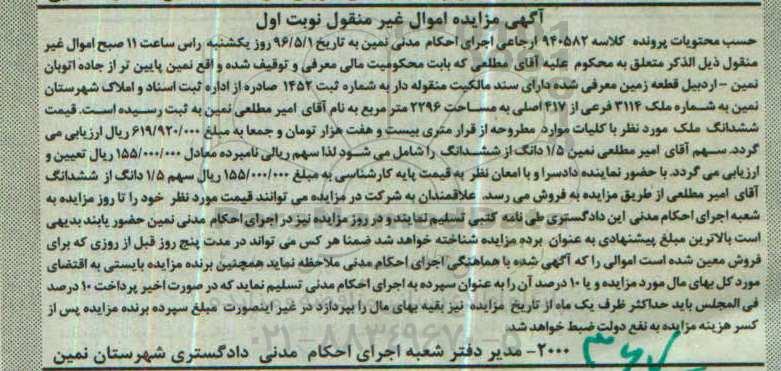 آگهی مزایده اموال غیر منقول نوبت اول
حسب محتویات پرونده کلاسه ۹۴۰۵۸۲ ارجاعی اجرای احکام مدنی نمین به تاریخ ۹۶/۵/۱ روز یکشنبه راس ساعت ۱۱ صبح اموال غیر
منقول ذیل الذکر متعلق به محکوم علیه آقای مطلعی که بابت محکومیت مالی معرفی و توقیف شده و اقع نمین پایین تر از جاده اتوبان
نمین - اردبیل قطعه زمین معرفی شده دارای سند مالکیت منقوله دار به شماره ثبت ۱۴۵۲ صادره از اداره ثبت اسناد و املاک شهرستان
نمین به شماره ملک ۳۱۱۴ فرعی از ۴۱۷ اصلی به مساحت ۲۲۹۶ متر مربع به نام آقای امیر مطلعی نمین به ثبت رسیده است. قیمت
ششدانگ ملک مورد نظر با کلیات موارد مطروحه از قرار متری بیست و هفت هزار تومان و جمعا به مبلغ ۶۱۹/۹۲۰/۰۰۰ ریال ارزیابی می
گردد. سهم آقای امیر مطلعی نمین ۱/۵ دانگ از ششدانگ را شامل می شود لذا سهم ریالی نامبرده معادل ۱۵۵/۰۰۰/۰۰۰ ریال تعیین و
ارزیابی می گردد. با حضور نماینده دادسرا و با امعان نظر به قیمت پایه کارشناسی به مبلغ ۱۵۵/۰۰۰/۰۰۰ ریال سهم ۱/۵ دانگ از ششدانگ
آقای امیر مطلعی از طریق مزایده به فروش می رسد. علاقمندان به شرکت در مزایده می توانند قیمت مورد نظر خود را تا روز مزایده به
شعبه اجرای احکام مدنی این دادگستری طی نامه کتبی تسلیم نمایند و در روز مزایده نیز در اجرای احکام مدنی نمین حضور یابند بدیهی
است بالاترین مبلغ پیشنهادی به عنوان برده مزایده شناخته خواهد شد ضمنا هر کس می تواند در مدت پنج روز قبل از روزی که برای
فروش معین شده است اموالی را که آگهی شده با هماهنگی اجرای احکام مدنی ملاحظه نماید همچنین برنده مزایده بایستی به اقتضای
مورد کل بهای مال مورد مزایده و یا ۱۰ درصد آن را به عنوان سپرده به اجرای احکام مدنی تسلیم نماید که در صورت اخیر پرداخت ۱۰ درصد
فی المجلس باید حداکثر ظرف یک ماه از تاریخ مزایده نیز بقیه بهای مال را بپردازد در غیر اینصورت مبلغ سپرده برنده مزایده پس از
کسر هزینه مزایده به نفع دولت ضبط خواهد شد.
۲۰۰۰- مدیر دفتر شعبه اجرای احکام مدنی دادگستری شهرستان نمین
۰۲۱-۸۸۳۴۹۶۷۰-۵